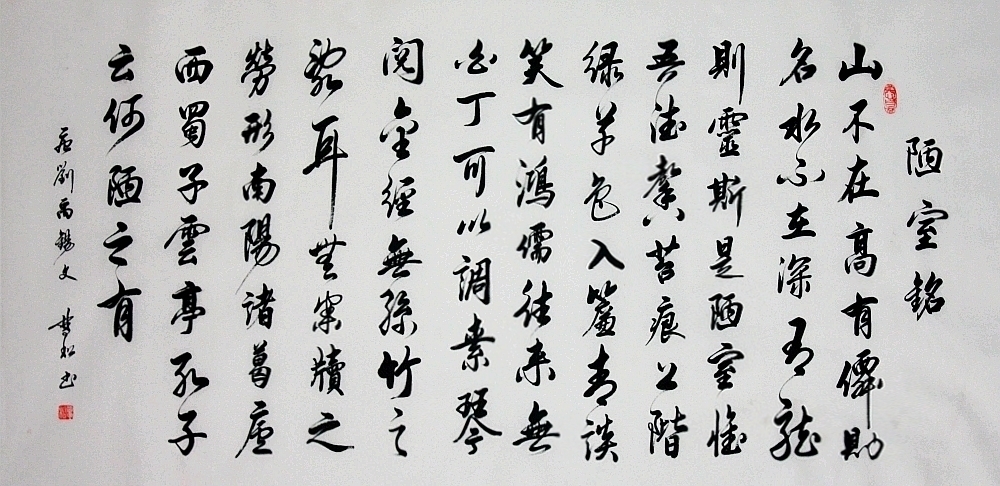 陋室銘
山不在高有僊則
名水不在深有龍
則靈斯是陋室惟
吾德馨苔痕上階
緑草色入簾青談
笑有鴻儒往来無
白丁可以調素琴
閲金經無絲竹之
亂耳無案牘之
勞形南陽諸葛廬
西蜀子雲亭孔子
云何陋之有
唐劉禹錫文 松书